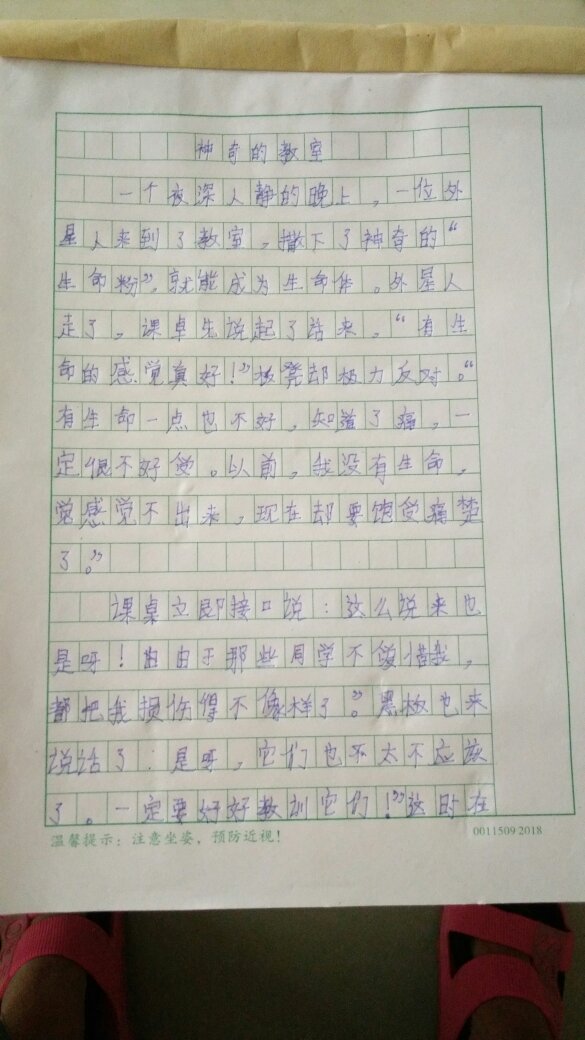 神奇的教室
一个夜深人静的晚上，一位外
星人来到了教室，撒下了神奇的“
生命粉”，就能成为生命体。外星人
走了，课桌先说起了话来。“有生
命的感觉真好！”板凳却极力反对。“
有生命一点也不好，知道了痛，一
定很不好受。以前，我没有生命，
觉感觉不出来，现在却要饱受痛楚
了。”
课桌立即接口说：这么说来也
是呀！由由于那些同学不爱惜我，
都把我损伤得不像样了”。黑板也来
说话了：是呀，它们也不太不应该
了。一定要好好教训它们！”这时在
温馨提示：注意坐姿，预防近视！
0011509 2018